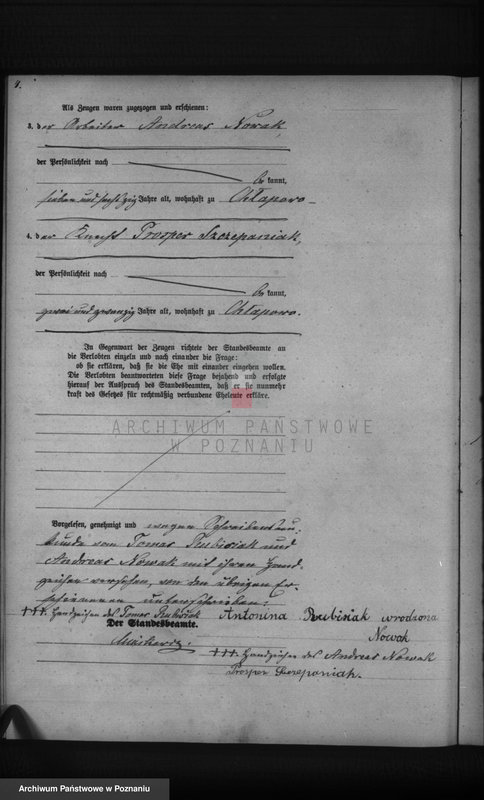 Als Zeugen waren zugezogen und erschienen:
3. der Arbeiter Andreas Nowak,
der Persönlichkeit nach
be kannt,
sieben und sechszig Jahre alt, wohnhaft zu Chłapowo
4. der Knecht Prosper Szczepaniak,
der Persönlichkeit nach
be kannt,
zwei und zwanzig Jahre alt, wohnhaft zu Chłapowo.
In Gegenwart der Zeugen richtete der Standesbeamte an
die Verlobten einzeln und nach einander die Frage:
ob sie erklären, daß sie die Ehe mit einander eingehen wollen.
Die Verlobten beantworteten diese Frage bejahend und erfolgte
hierauf der Ausspruch des Standesbeamten, daß er sie nunmehr
kraft des Gesetzes für rechtmäßig verbundene Eheleute erkläre.
ARCHIWUM PAŃSTWOWE
W POZNANIU
Vorgelesen, genehmigt und wegen Schreibensun-
kunde vom Tomas Rubisiak und
Andreas Nowak mit ihren Hand-
zeichen versehen, von den übrigen Er-
schienenen unterschrieben:
+++ Handzeichen des Tomas Rubisiak Antonina Rubisiak urodzona
Der Standesbeamte. Nowak
+++ Handzeichen des Andreas Nowak
Prosper Szczepaniak.
Archiwum Państwowe w Poznaniu